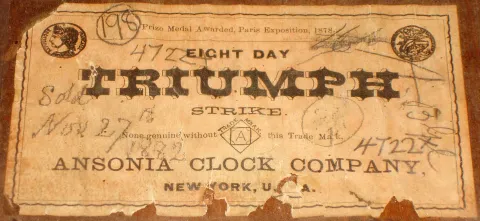 198
Prize Medal Awarded, Paris Exposition, 1878.
4722
EIGHT DAY
TRIUMPH
STRIKE.
Sold
Nov 27th
1882
None genuine without this Trade Mark.
TRADE MARK
A
4722
ANSONIA CLOCK COMPANY,
NEW YORK, U. S. A.